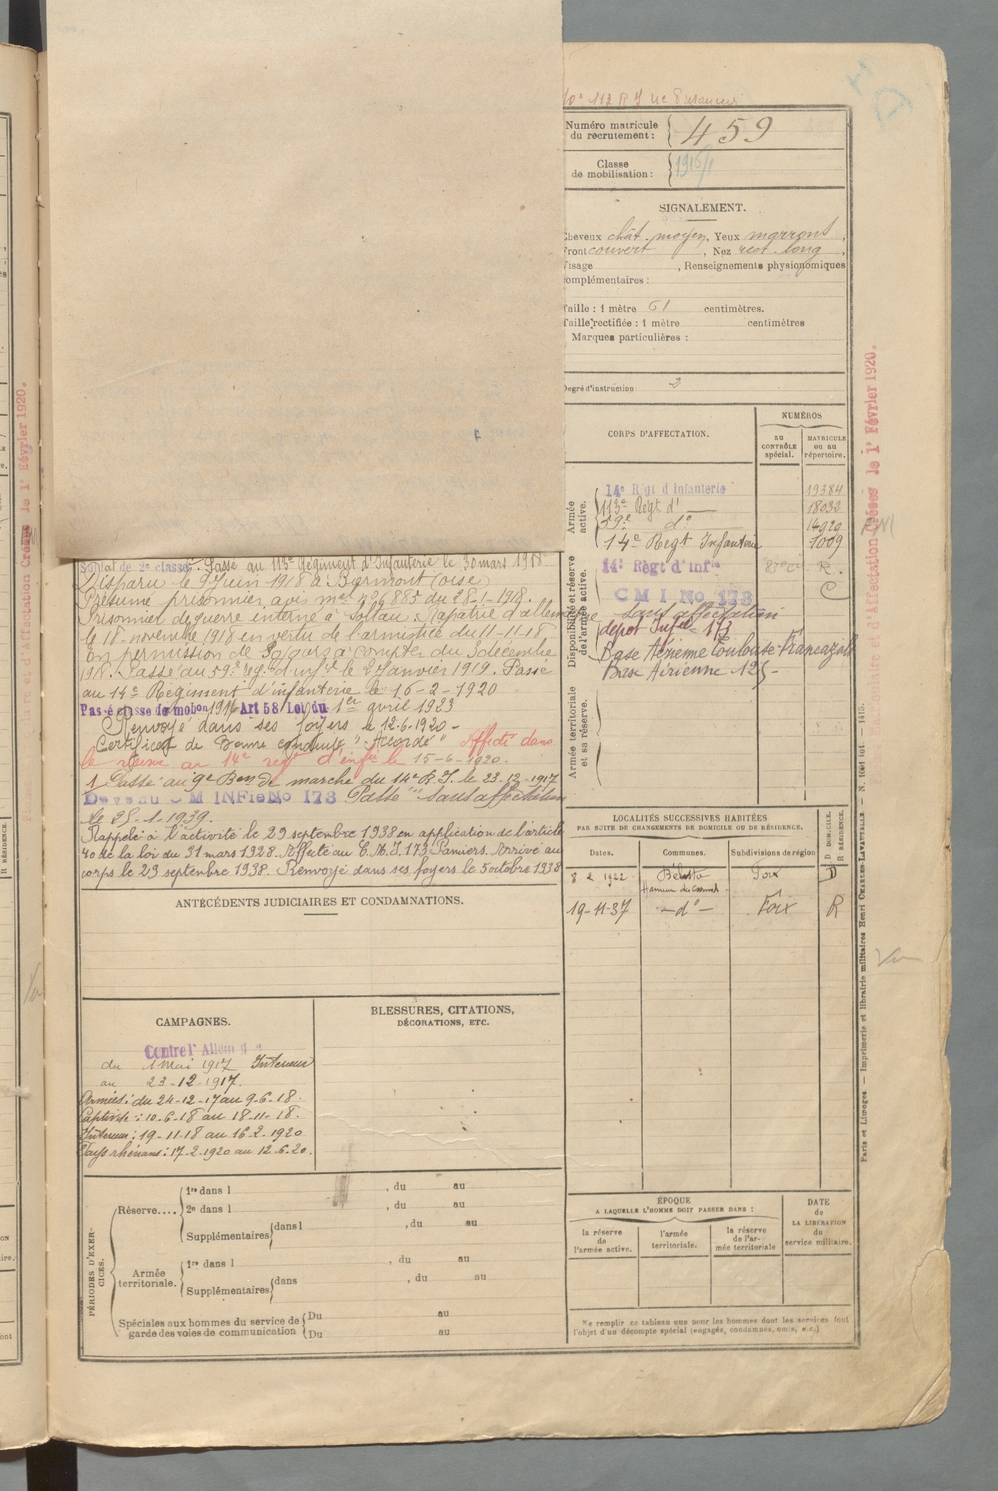 Numéro matricule
du recrutement :
459
Classe
de mobilisation :
1916/1
SIGNALEMENT.
Cheveux chât. moyen, Yeux marrons,
Front couvert, Nez rect. long,
Visage , Renseignements physionomiques
complémentaires :
Taille : 1 mètre 61 centimètres.
Taille rectifiée : 1 mètre centimètres
Marques particulières :
Degré d'instruction 2
CORPS D'AFFECTATION.
NUMÉROS
au
CONTRÔLE
spécial.
MATRICULE
ou au
répertoire.
Armée
active.
14e Régt d'Infanterie 19384
113e Régt d° 18032
59e d° 14929
14e Regt Infanterie 1009
Disponibilité et réserve
de l'armée active.
14e Règt d'Infie R.
C M I No 173 C
sans affectation
dépot Infie 173
Base Aérienne Toulouse-Francazal
Base Aérienne 125
Armée territoriale
et sa réserve.
Soldat de 2e classe. Passé au 113e Régiment d'Infanterie le 30 mars 1918
Disparu le 9 Juin 1918 à Biermont (oise)
Présumé prisonnier avis mel n° 6885 du 28-1-1918.
Prisonnier de guerre interné à Rapatrié d'allemagne
le 18 novembre 1918 en vertu de l'armistice du 11-11-18
En permission de à compter du 3 décembre
1918. Passé au 59e régt d'infie le 2 Janvier 1919. Passé
au 14e Régiment d'infanterie le 16-2-1920
Passé classe de mobon 1916 Art 58 Loi du 1er avril 1923
Renvoyé dans ses foyers le 12.6.1920 -
Certificat de Bonne conduite "Accordé" Affecté dans
la réserve au 14e regt d'infie le 15-6-1920.
1 Passé au 9e Bon de marche du 14e R.I. le 23.12.1917
Devenu C M INFie No 173 Passé "sans affectation"
le 28.1.1939.
Rappelé à l'activité le 29 septembre 1938 en application de l'article
40 de la loi du 31 mars 1928. Affecté au C.M.I. 173 Pamiers. Arrivé au
corps le 29 septembre 1938. Renvoyé dans ses foyers le 5 octobre 1938
ANTÉCÉDENTS JUDICIAIRES ET CONDAMNATIONS.
LOCALITÉS SUCCESSIVES HABITÉES
PAR SUITE DE CHANGEMENTS DE DOMICILE OU DE RÉSIDENCE.
Dates. Communes. Subdivisions de région
D DOMICILE.
R RÉSIDENCE.
8 2 1922 Bélesta Foix D
19-11-37 -d°- Foix R
CAMPAGNES.
Contre l'Allemagne
du 1 Mai 1917 Intérieur
au 23-12-1917.
Armées : du 24-12-17 au 9-6-18.
Captivité : 10-6-18 au 18-11-18.
Intérieur : 19-11-18 au 16-2-1920
Pays rhénans : 17-2-1920 au 12-6-20.
BLESSURES, CITATIONS,
DÉCORATIONS, ETC.
PÉRIODES D'EXERCICES.
Réserve....
1re dans l , du au
2e dans l , du au
Supplémentaires dans l , du au
Armée
territoriale.
1re dans l , du au
Supplémentaires dans , du au
Spéciales aux hommes du service de
garde des voies de communication
Du au
Du au
ÉPOQUE
A LAQUELLE L'HOMME DOIT PASSER DANS :
la réserve
de
l'armée active.
l'armée
territoriale.
la réserve
de l'ar-
mée territoriale
DATE
de
LA LIBÉRATION
du
service militaire.
Ne remplir ce tableau que pour les hommes dont les services font
l'objet d'un décompte spécial (engagés, condamnés, omis, etc.)
Paris et Limoges — Imprimerie et librairie militaires Henri CHARLES-LAVAUZELLE
le 1er Février 1920.